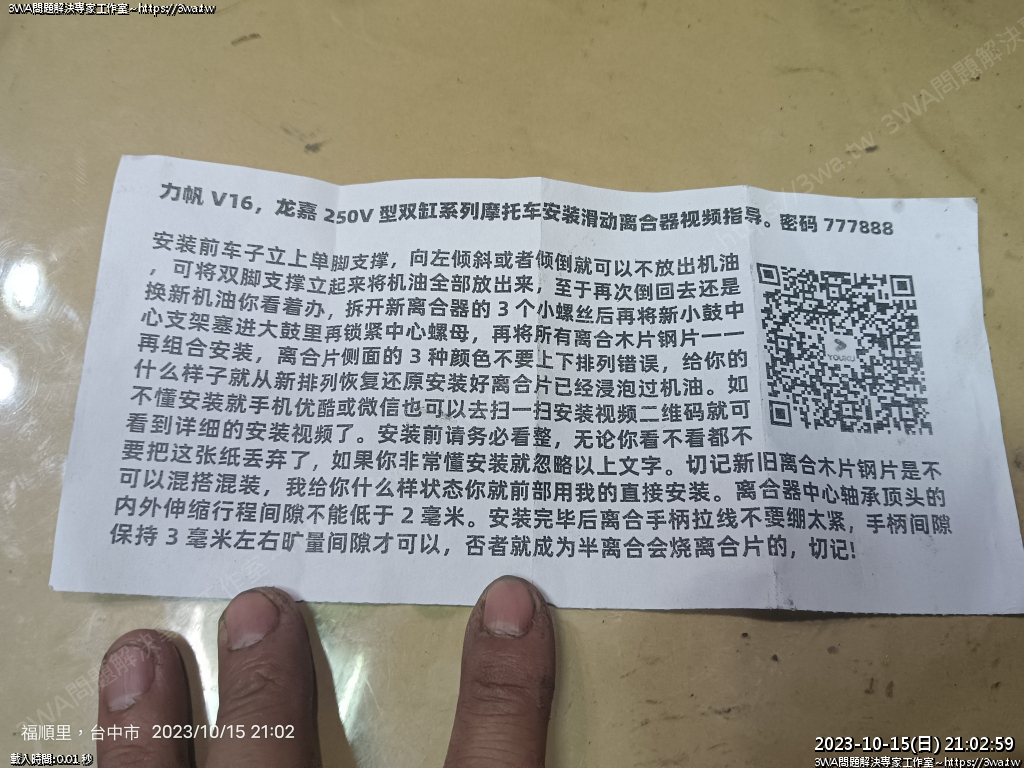 3WA問題解決專家工作室~https://3wa.tw
3WA問題解決專家工作室~https://3wa.tw
3wa.tw 3WA問題解決
力帆 V16，龙嘉 250V 型双缸系列摩托车安装滑动离合器视频指导。密码 777888
安装前车子立上单脚支撑，向左倾斜或者倾倒就可以不放出机油
，可将双脚支撑立起来将机油全部放出来，至于再次倒回去还是
换新机油你看着办，拆开新离合器的 3 个小螺丝后再将新小鼓中
心支架塞进大鼓里再锁紧中心螺母，再将所有离合木片钢片一一
再组合安装，离合片侧面的 3 种颜色不要上下排列错误，给你的
什么样子就从新排列恢复还原安装好离合片已经浸泡过机油。如
不懂安装就手机优酷或微信也可以去扫一扫安装视频二维码就可
看到详细的安装视频了。安装前请务必看整，无论你看不看都不
要把这张纸丢弃了，如果你非常懂安装就忽略以上文字。切记新旧离合木片钢片是不
可以混搭混装，我给你什么样状态你就前部用我的直接安装。离合器中心轴承顶头的
内外伸缩行程间隙不能低于 2 毫米。安装完毕后离合手柄拉线不要绷太紧，手柄间隙
保持 3 毫米左右旷量间隙才可以，否者就成为半离合会烧离合片的，切记!
YOUKU
3WA問題解決專家工作室
福順里，台中市 2023/10/15 21:02
載入時間:0.01 秒
2023-10-15(日) 21:02:59
3WA問題解決專家工作室~https://3wa.tw